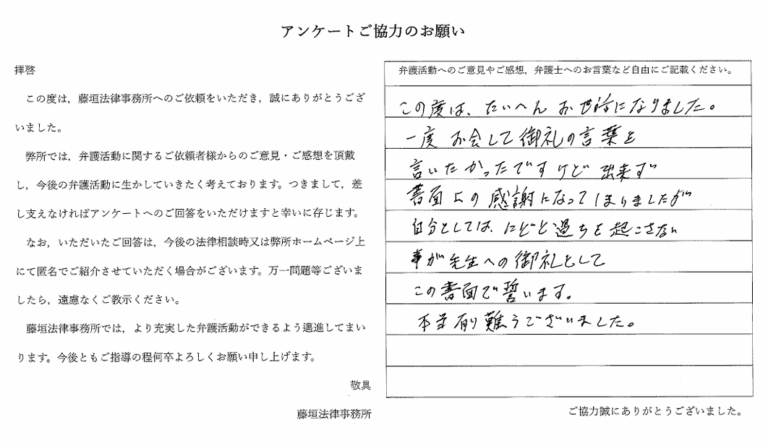 アンケートご協力のお願い
拝啓
この度は，藤垣法律事務所へのご依頼をいただき，誠にありがとうござ
いました。
弊所では，弁護活動に関するご依頼者様からのご意見・ご感想を頂戴
し，今後の弁護活動に生かしていきたく考えております。つきまして，差
し支えなければアンケートへのご回答をいただけますと幸いに存じます。
なお，いただいたご回答は，今後の法律相談時又は弊所ホームページ上
にて匿名でご紹介させていただく場合がございます。万一問題等ございま
したら，遠慮なくご教示ください。
藤垣法律事務所では，より充実した弁護活動ができるよう邁進してまい
ります。今後ともご指導の程何卒よろしくお願い申し上げます。
敬具
藤垣法律事務所
弁護活動へのご意見やご感想，弁護士へのお言葉など自由にご記載ください。
この度は、たいへんお世話になりました。
一度 お会して御礼の言葉を
言いたかったですけど 出来ず
書面上の感謝になってしまりましたが
自分としては、にどと過ちを起こさない
事が先生への御礼として
この書面で誓います。
本当有難うございました。
ご協力誠にありがとうございました。